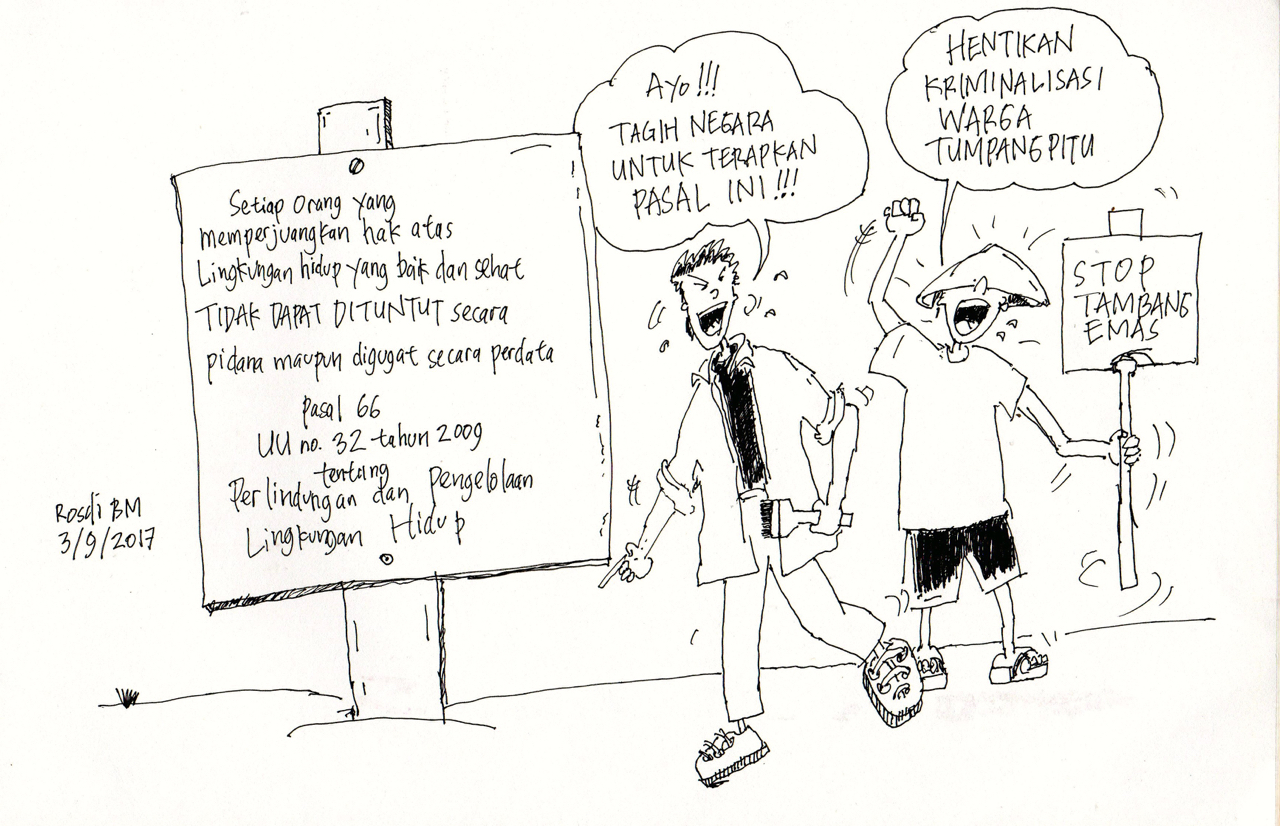 Setiap orang yang
memperjuangkan hak atas
Lingkungan hidup yang baik dan sehat
TIDAK DAPAT DITUNTUT secara
pidana maupun digugat secara perdata
pasal 66
UU no. 32 tahun 2009
tentang
Perlindungan dan Pengelolaan
Lingkungan Hidup
Rosdi BM
3/9/2017
AYO!!!
TAGIH NEGARA
UNTUK TERAPKAN
PASAL INI!!!
HENTIKAN
KRIMINALISASI
WARGA
TUMPANGPITU
STOP
TAMBANG
EMAS